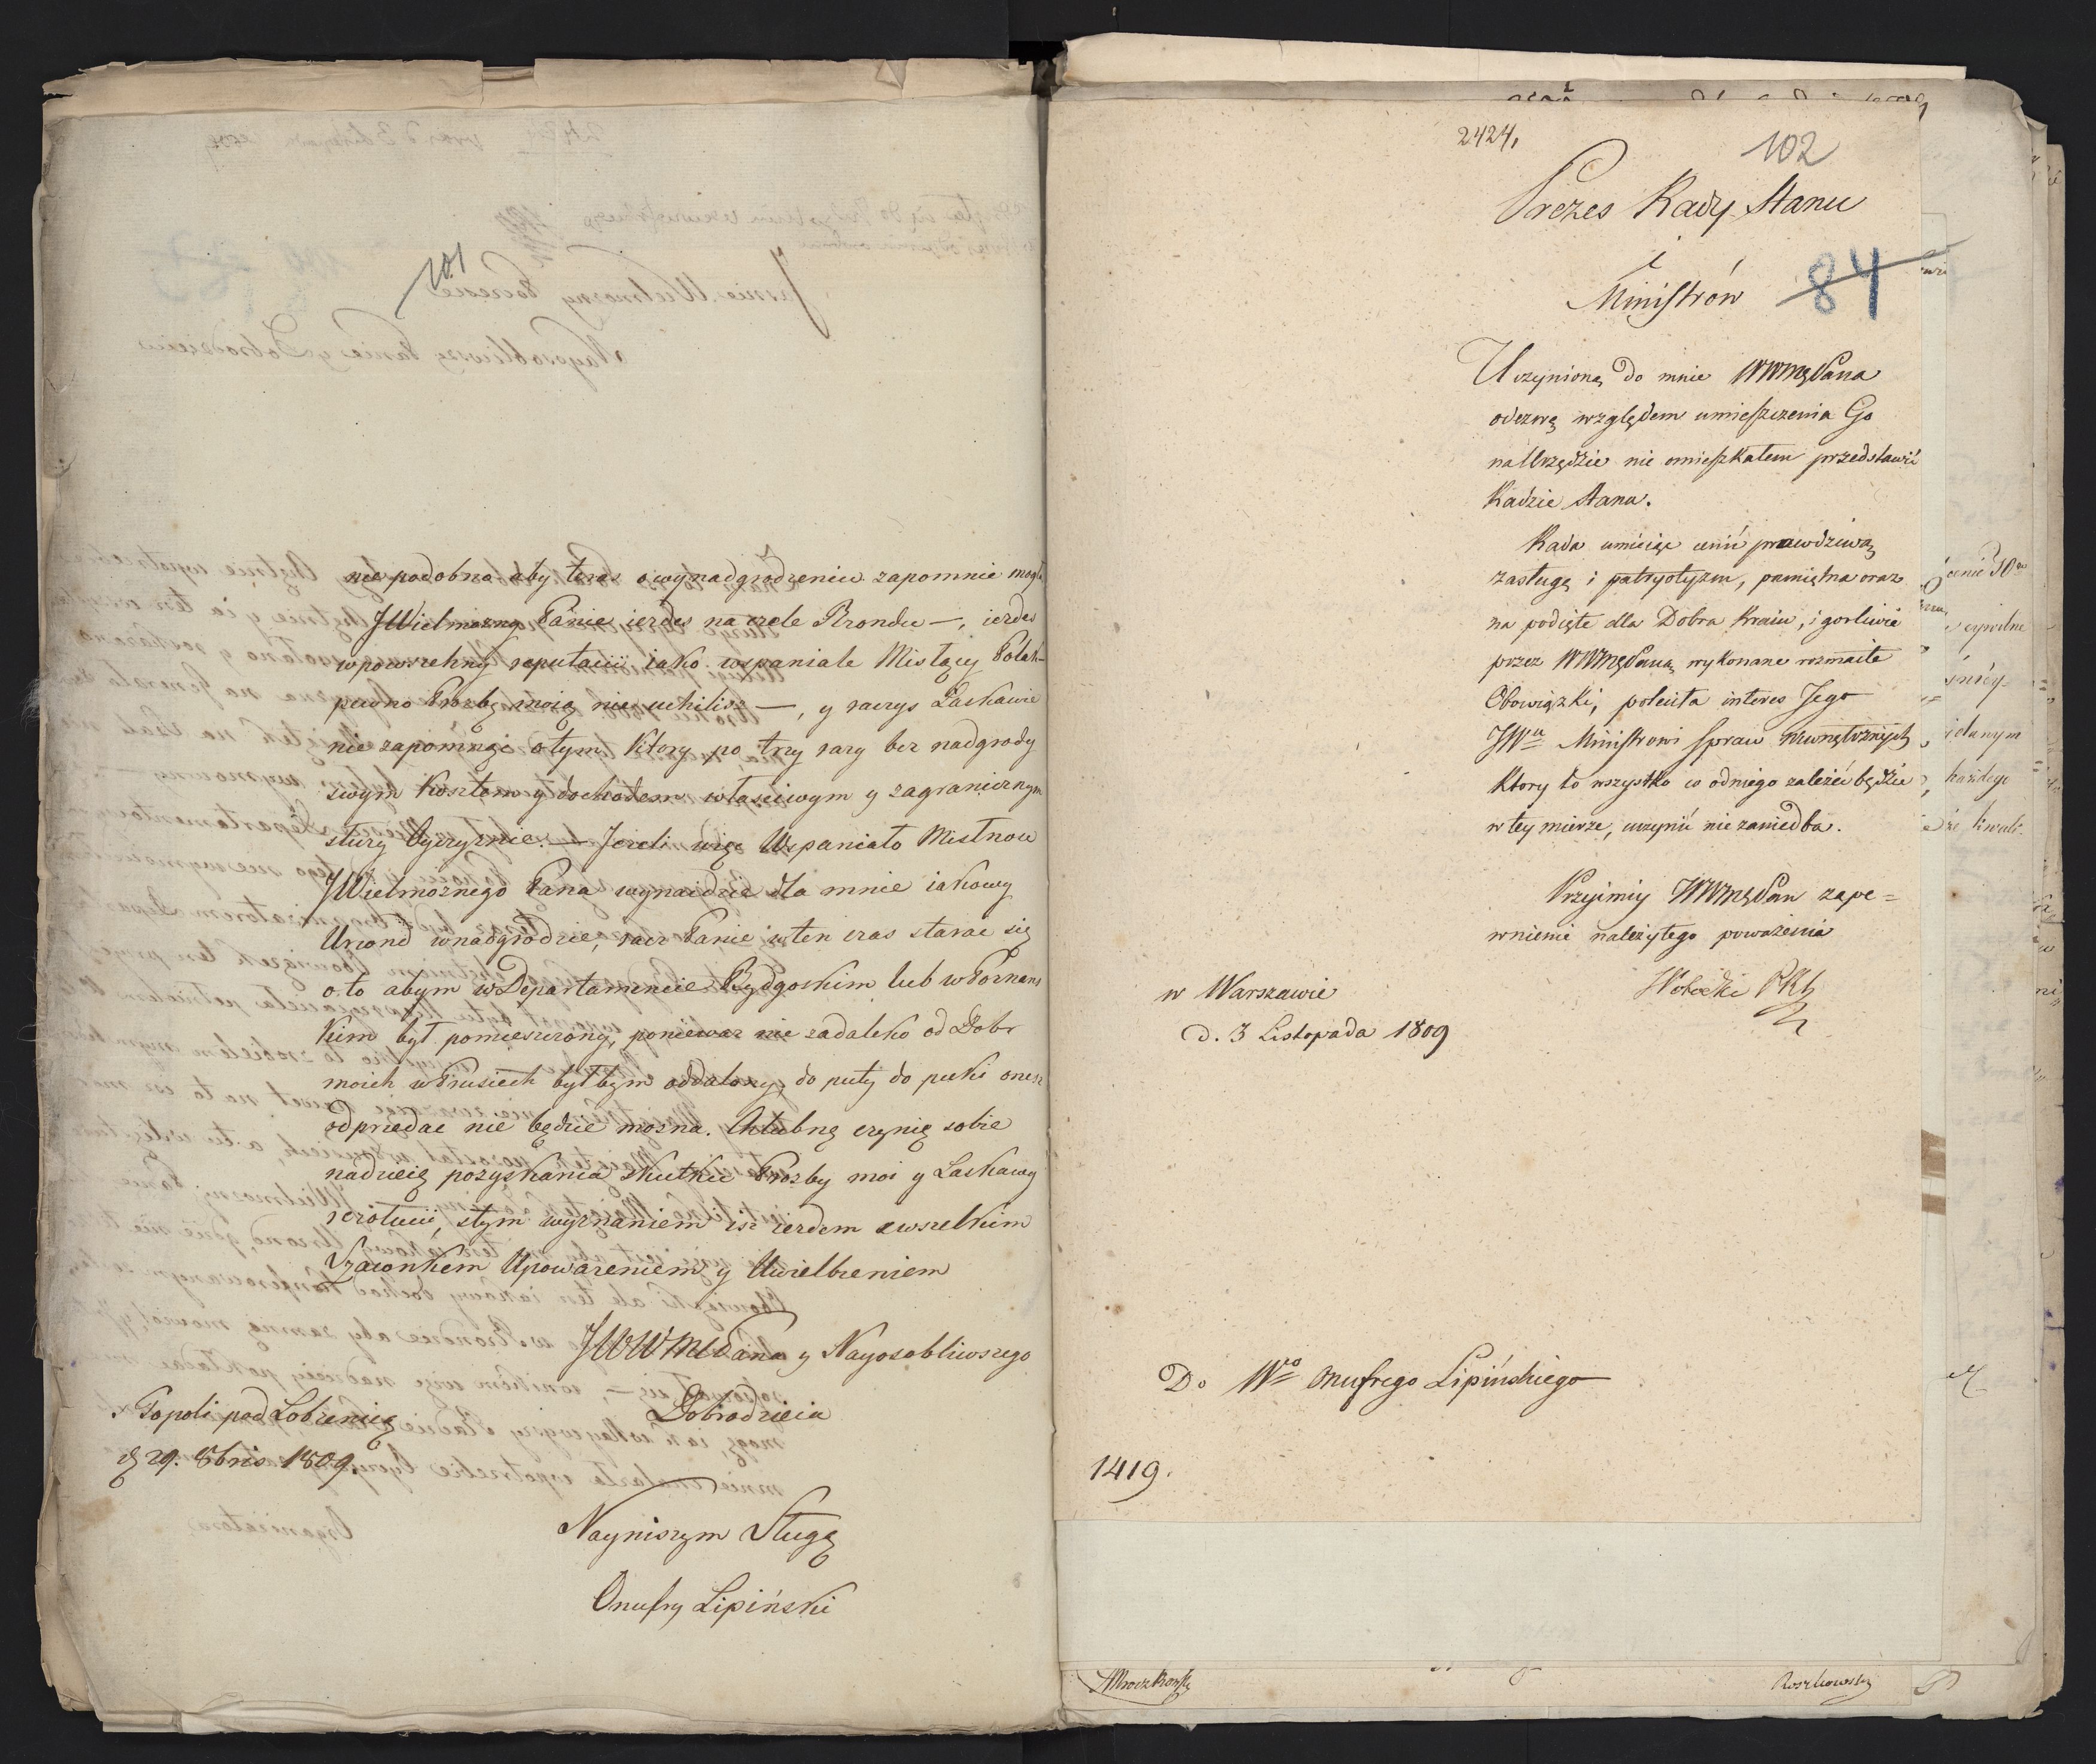 101
nie podobna aby teras o wynadgrodzeniu zapomnie mogła
JWielmozny Panie iezdes na czele Rrondu —, iezdes
w powszechny reputacii iako wspaniale Mislący Polak
pewno Prozby moię nie uchilisz —, y raczys Laskawie
nie zapomnąc otym ktory po trzy razy bez nadgrody
swym Kosztem y dochodem własciwym y zagranicznym
słuzy Oyczyznie. — Jezeli więc Wspaniało Mislnou
JWielmoznego Pana wynaidzie dla mnie iakowy
Urzond w nadgrodzie, racz Panie w ten czas starac się
o to abym w Departamencie Bydgoskim lub w Poznans
kim był pomieszczony, poniewaz nie zadaleko od Dobr
moich w Prusiech był bym oddalony, do puty do puki onesz
odprzedac nie będzie mozna. Chlubnę czynię sobie
nadzieię pozyskania skutku Prozby moi y Laskawy
rezolucii, stym wyznaniem isz iezdem z wszelkim
Szacunkem Upowazeniem y Uwielbieniem
JWWMPana y Nayosobliwszego
Dobrodzieia
z Topoli pod Lobzenicą
d 29. 8bris 1809.
Nayniszym Sługą
Onufry Lipiński
2424.
102
Prezes Rady Stanu
i
Ministrów
84
Uczynioną do mnie WWMgPana
odezwę względem umieszczenia Go
na Urzędzie nie omieszkałem przedstawić
Radzie Stanu.
Rada umieiąc cenić prawdziwą
zasługę i patryotyzm, pamiętna oraz
na podięte dla Dobra Kraiu, i gorliwie
przez WWMgPana wykonane rozmaite
Obowiązki, poleciła interes Jego
JWu Ministrowi Spraw Wewnętrznych,
ktory to wszystko co od niego zależeć będzie
w tey mierze, uczynić nie zaniedba.
Przyimiy WWMgPan zape=
wnienie należytego poważenia
w Warszawie
d. 3 Listopada 1809
Do Wgo Onufrego Lipińskiego
1419.
Roszkowski